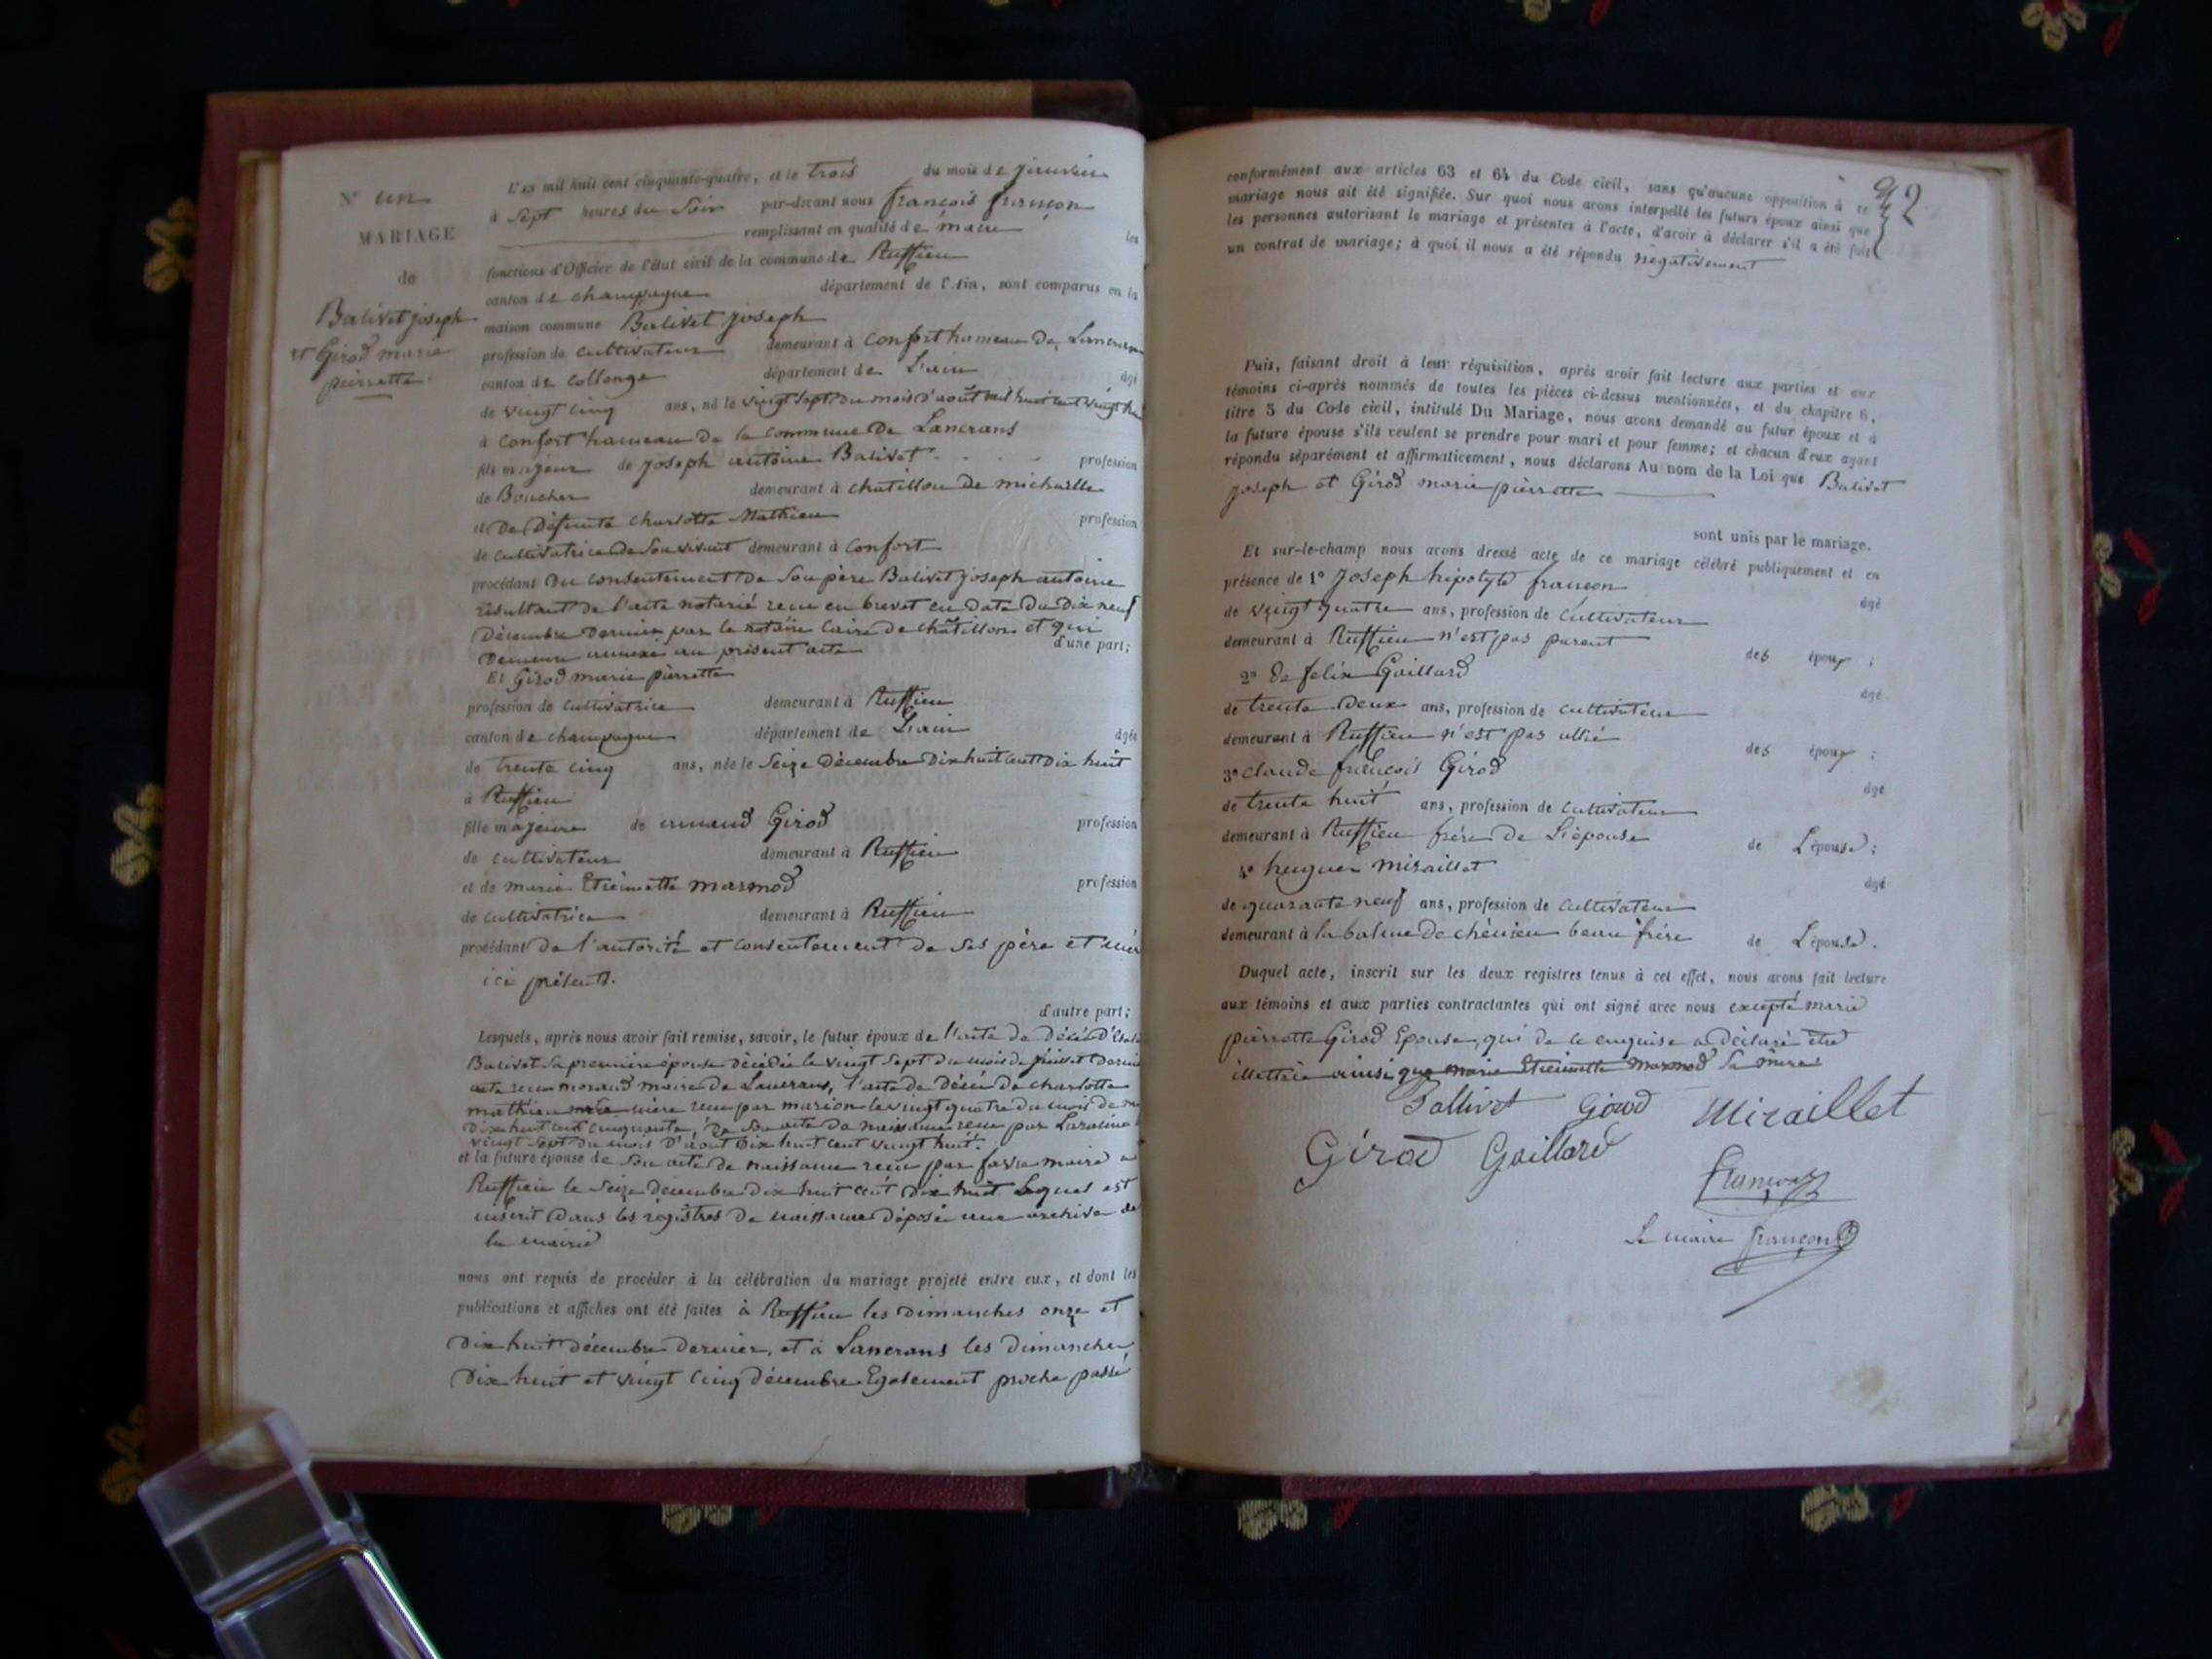 N° un
MARIAGE
de
Balivet joseph
et Girod marie
pierrette.
L'an mil huit cent cinquante-quatre, et le trois du mois de janvier
à Sept heures du Soir par-devant nous françois françon
remplissant en qualité de maire les
fonctions d'Officier de l'état civil de la commune de Ruffieu
canton de champagne département de l'Ain, sont comparus en la
maison commune Balivet joseph
profession de cultivateur demeurant à confort hameau de Lancrans
canton de Collonge département de L'ain âgé
de vingt cinq ans, né le vingt sept du mois d'août mil huit cent vingt
à confort hameau de la commune De Lancrans
fils majeur de joseph antoine Balivet profession
de Boucher demeurant à châtillon de michaille
et De Défunte charlotte Mathieu profession
de cultivatrice de Son vivant demeurant à confort
procédant Du consentement De Son père Balivet joseph antoine
résultant de l'acte notarié reçu en brevet en Date Du Dix neuf
Décembre Dernier par le notaire de châtillon et qui
Demeure annexé au présent acte d'une part;
Et Girod marie pierrette
profession de cultivatrice demeurant à Ruffieu
canton de champagne département de L'ain âgée
de trente cinq ans, née le Seize Décembre Dix huit cent Dix huit
à Ruffieu
fille majeure de armand Girod profession
de cultivateur demeurant à Ruffieu
et de marie Etiennette marmod profession
de cultivatrice demeurant à Ruffieu
procédant de l'autorité et consentement de Ses père et mère
ici présents.
d'autre part;
Lesquels, après nous avoir fait remise, savoir, le futur époux de l'acte de Décès
Balivet Sa première épouse Décédée le vingt Sept du mois de juillet Dernier
acte reçu morand maire de Lancrans, l'acte de Décès De charlotte
mathieu mère reçu par marion le vingt quatre du mois de
Dix huit cent cinquante, De Son acte De naissance reçu par
vingt Sept du mois D'août Dix huit cent vingt huit.
et la future épouse de Son acte de naissance reçu par favre maire a
Ruffieu le Seize décembre Dix huit cent Dix huit Lequel est
inscrit Dans les registres De naissance déposé aux archive de
la mairie
nous ont requis de procéder à la célébration du mariage projeté entre eux, et dont les
publications et affiches ont été faites à Ruffieu les Dimanches onze et
Dix huit décembre Dernier, et à Lancrans les Dimanches
Dix huit et vingt Cinq décembre Egalement proche passé
92
conformément aux articles 63 et 64 du Code civil, sans qu'aucune opposition à ce
mariage nous ait été signifiée. Sur quoi nous avons interpellé les futurs époux ainsi que
les personnes autorisant le mariage et présentes à l'acte, d'avoir à déclarer s'il a été fait
un contrat de mariage; à quoi il nous a été répondu négativement
Puis, faisant droit à leur réquisition, après avoir fait lecture aux parties et aux
témoins ci-après nommés de toutes les pièces ci-dessus mentionnées, et du chapitre 6,
titre 5 du Code civil, intitulé Du Mariage, nous avons demandé au futur époux et à
la future épouse s'ils veulent se prendre pour mari et pour femme; et chacun d'eux ayant
répondu séparément et affirmativement, nous déclarons Au nom de la Loi que Balivet
joseph et Girod marie pierrette
sont unis par le mariage.
Et sur-le-champ nous avons dressé acte de ce mariage célébré publiquement et en
présence de 1° joseph hipolyte françon âgé
de vingt quatre ans, profession de Cultivateur
demeurant à Ruffieu n'est pas parent des époux ;
2° De felix Gaillard âgé
de trente Deux ans, profession de cultivateur
demeurant à Ruffieu n'est pas allié des époux ;
3° claude françois Girod âgé
de trente huit ans, profession de cultivateur
demeurant à Ruffieu frère De L'épouse de L'épouse ;
4° hugues miraillet âgé
de quarante neuf ans, profession de Cultivateur
demeurant à la balme De chérieu beau frère de L'épouse.
Duquel acte, inscrit sur les deux registres tenus à cet effet, nous avons fait lecture
aux témoins et aux parties contractantes qui ont signé avec nous excepté marie
pierrette Girod Epouse, qui de ce enquise a déclaré être
illettrée ainsi que marie Etiennette marmod Sa mère
Ballivet Girod Miraillet
Girod Gaillard
françon
Le maire françon